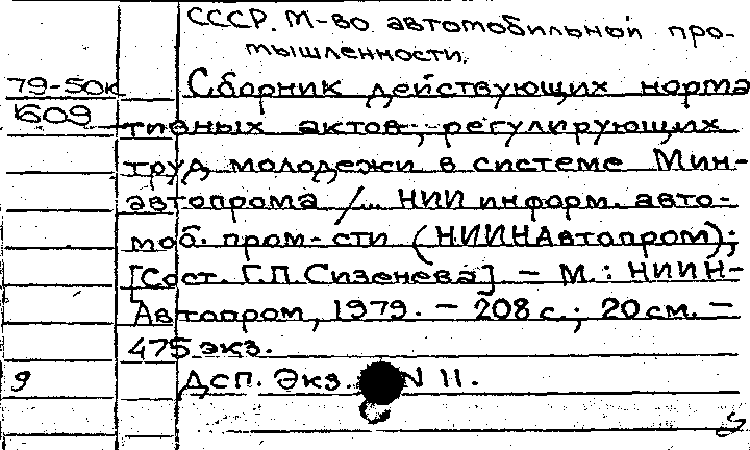 СССР. М-во автомобильной про-
мышленности.
79-50к Сборник действующих норма
609 тивных актов, регулирующих
труд молодежи в системе Мин-
автопрома /... НИИ информ. авто-
моб. пром-сти (НИИНАвтопром);
[Сост. Г.П. Сизенева] - М.: НИИН-
Автопром, 1979. - 208 с.; 20 см. -
475 экз.
9 ДСП. Экз. N 11.